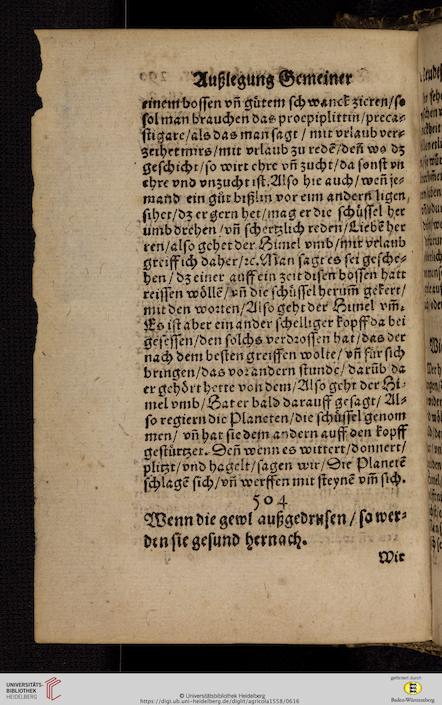 Außlegung Gemeiner
einem bossen vñ gůtem schwanck zieren/so
sol man brauchen das proepiplittin/preca-
stigare/als das man sagt / mit vrlaub ver-
zeihet mirs/mit vrlaub zu redē/deñ wo dz
geschicht/so wirt ehre vñ zucht/da sonst vn
ehre vnd vnzucht ist. Also hie auch/weñ je-
mand ein gůt bißlin vor eim andern ligen
sihet/dz er gern het/mag er die schüssel her
umb drehen/vñ schertzlich reden/Liebē her
ren/also gehet der Himel vmb/mit vrlaub
greiff ich daher/ꝛc. Man sagt es sei gesche-
hen/dz einer auff ein zeit disen bossen hatt
reissen wöllē/vñ die schüssel herum̃ gekert/
mit den worten/Also geht der Himel vm̃.
Es ist aber ein ander schelliger kopff da bei
gesessen/den solchs verdrossen hat/das der
nach dem besten greiffen wolte/vñ für sich
bringen/das vor andern stunde/darüb da
er gehört hette von dem/Also geht der Hi-
mel vmb/Hat er bald darauff gesagt/Al-
so regiern die Planeten/die schüssel genom
men/vñ hat sie dem andern auff den kopff
gestürtzet. Deñ wenn es wittert/donnert/
plitzt/vnd hagelt/sagen wir/Die Planetē
schlagē sich/vñ werffen mit steynē vm̃ sich.
504
Wenn die gewl außgedrusen/so wer-
den sie gesund hernach.
Wie
UNIVERSITÄTS-
BIBLIOTHEK
HEIDELBERG
© Universitätsbibliothek Heidelberg
https://digi.ub.uni-heidelberg.de/diglit/agricola1558/0616
gefördert durch
Baden-Württemberg